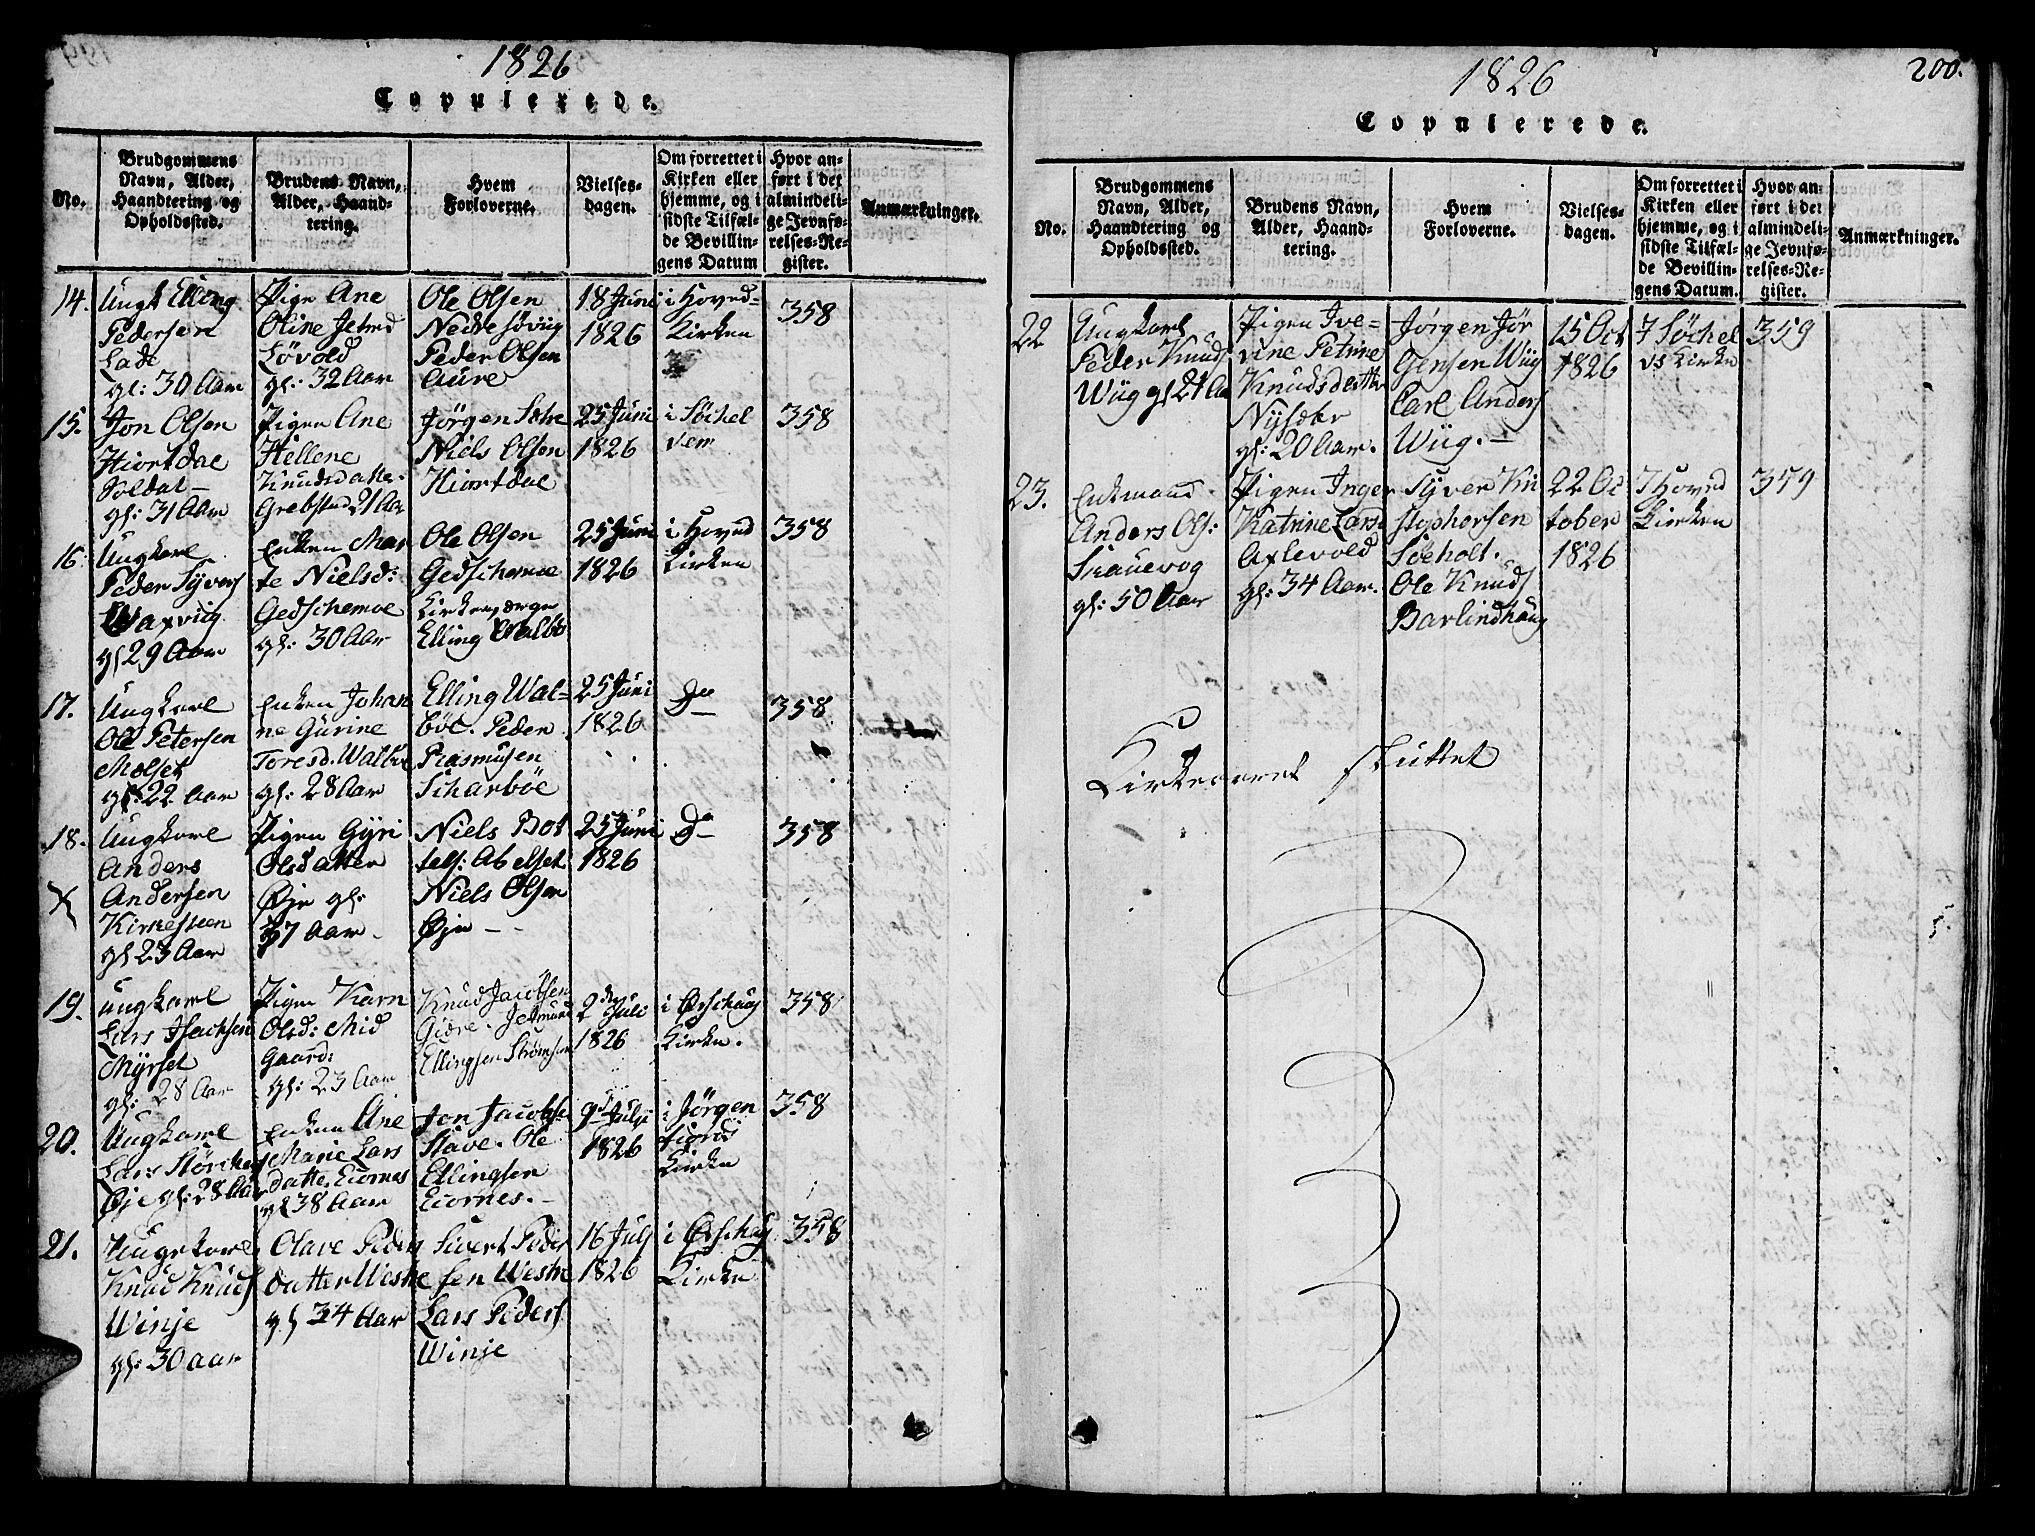 1826
Copulerede.
No.
Brudgommens
Navn, Alder,
Haandtering og
Opholdssted.
Brudens Navn,
Alder, Haand-
tering.
Hvem
Forloverne.
Vielses-
dagen.
Om forrettet i
Kirken eller
hjemme, og i
sidste Tilfæl-
de Bevillin-
gens Datum
Hvor an-
ført i det
almindeli-
ge Jevnfø-
relses-Re-
gister.
Anmærkninger.
14.
Ungk Elling
Pedersen
Lade
gl: 30 Aar
Pige Ane
Oline Jetmd
Løvold
gl: 32 Aar
Ole Olsen
Nedre Søviig
Peder Olsen
Aure
18 Juni
1826
i Hoved-
Kirken
358
15.
Jon Olsen
Hiortdal
Soldat -
gl: 31 Aar
Pigen Ane
Hellene
Knudsdatte.
Grebstad 21 Aar
Jörgen Sætre
Niels Olsen
Hiortdal
25 Juni
1826
i Söchel
vem
358
16.
Ungkarl
Peder Syvers
Waxviig
gl 29 Aar
Enken Mar
te Nielsd:
Gedschemoe
gl: 30 Aar
Ole Olsen
Gedschemoe
Kirkeværge
Elling Walbö
25 Juni
1826
i Hoved
Kirken
358
17.
Ungkarl
Ole Petersen
Molset
gl: 22 Aar
Enken Johan
ne Gurine
Toresd. Walböe
gl: 28 Aar
Elling Wal=
böe. Peder
Rasmusen
Scharböe
25 Juni
1826
Do
358
18.
Ungkarl
Anders
Andersen
Kirkesteen
gl 23 Aar
Pigen Gyri
Olsdatter
Øje gl:
37 Aar -
Niels Bot
tels: Abelset
Niels Olsen
Øje -
25 Juni
1826
Do
358
19.
Ungkarl
Lars Isachsen
Myrset
gl: 28 Aar
Pigen Karn
Olsd: Mid
Gaard:
gl: 23 Aar
Knud Jacobsen
Giære. Jetmund
Ellingsen Strömsem
2den Juli
1826
i Ørschaug
Kirke.
358
20.
Ungkarl
Lars Störcker
Øje gl: 28 Aar
Enken Ane
Marie Lars
datte. Eiornes
gl 38 Aar
Jon Jacobs.
Stave. Ole
Ellingsen
Eiornes. -
9d Julii
1826
i Jörgen
fiords
Kirke
358
21.
Ungekarl
Knud Knuds
Winje
gl: 30 aar
Olave Peders
datter Westre
gl 34 Aar
Sivert Peder
sen Westre
Lars Peders
Winje
16 Juli
1826
i Ørschaug
Kirke
358
1826
200.
Copulerede.
No.
Brudgommens
Navn, Alder,
Haandtering og
Opholdssted.
Brudens Navn,
Alder, Haand-
tering.
Hvem
Forloverne.
Vielses-
dagen.
Om forrettet i
Kirken eller
hjemme, og i
sidste Tilfæl-
de Bevillin-
gens Datum.
Hvor an-
ført i det
almindeli-
ge Jevnfø-
relses-Re-
gister.
Anmærkninger.
22
Ungkarl
Peder Knuds
Wiig gl 21 Aa
Pigen Ive-
rine Petrine
Knudsdatter
Nysæter
gl: 20 Aar.
Jørgen Jør
gensen Wiig
Carl Anders
Wiig. -
15 Oct
1826
I Söchel
vs Kirke
359
23.
Enkmand
Anders Ols:
Skauevog
gl: 50 Aar
Pigen Inger
Katrine Larsd
Axlevold
gl: 34 Aar.
Syver Kri
stophersen
Søeholt.
Ole Knuds
Barlindhaug
22 Oc
tober
1826
I Hoved
Kirken
359
Kirkeaaret sluttet